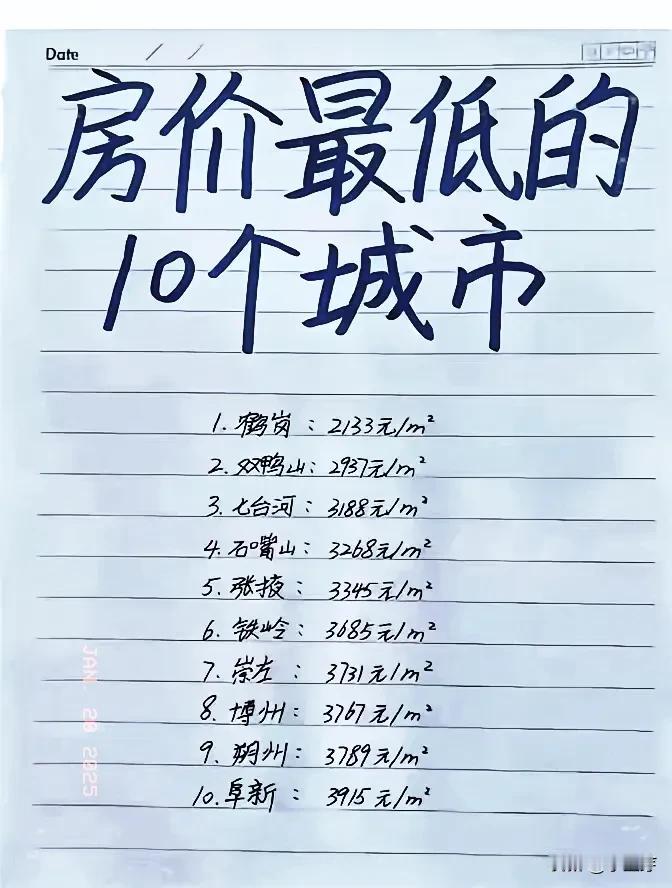 Date / /
房价最低的
10个城市
1. 鹤岗：2133元/m²
2. 双鸭山：2937元/m²
3. 七台河：3188元/m²
4. 石嘴山：3268元/m²
5. 张掖：3345元/m²
6. 铁岭：3685元/m²
7. 崇左：3731元/m²
8. 博州：3767元/m²
9. 朔州：3789元/m²
10. 阜新：3915元/m²
JAN. 20 2025